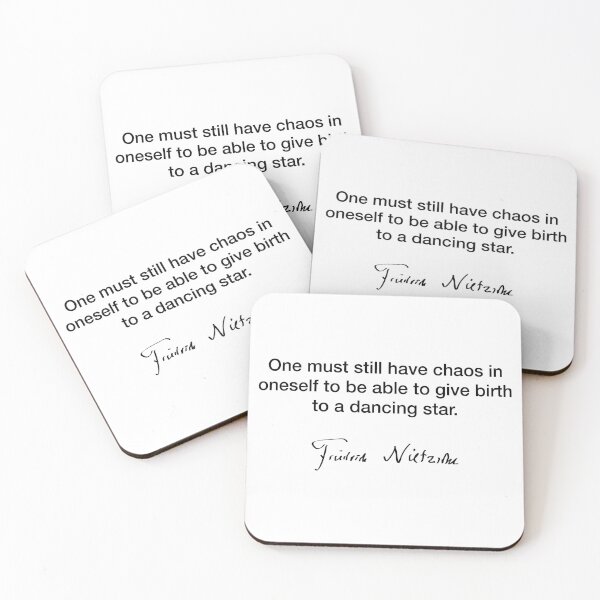 One must still have chaos in
oneself to be able to give
to a
star.
One must still have chaos in
oneself to be able to give birth
to a dancing star.
Friedrich Nietzsche
One must still have chaos in
oneself to be able to give birth
to a dancing star.
Friedrich
One must still have chaos in
oneself to be able to give birth
to a dancing star.
Friedrich Nietzsche